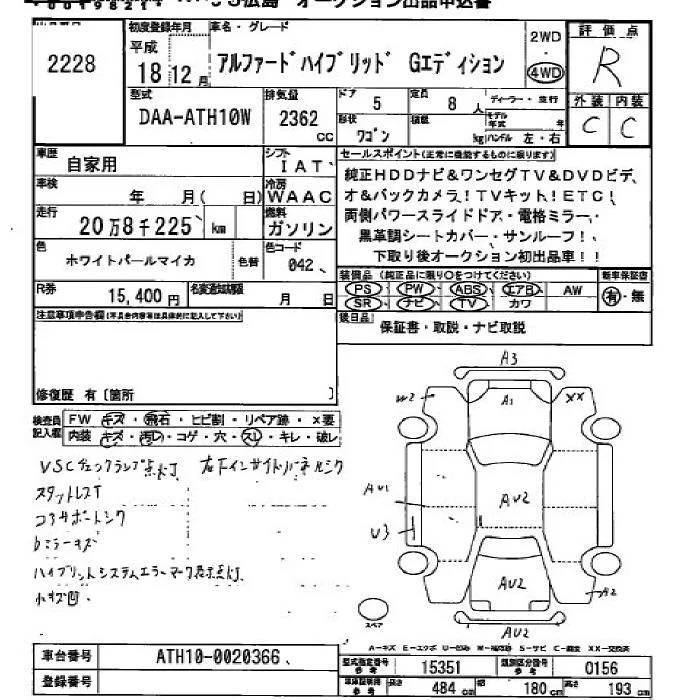 JS広島 オークション出品申込書
2228
初度登録年月
平成
18 12 月
車名・グレード
アルファードハイブリッド Gエディション
2WD
・
4WD
評価点
R
型式
DAA-ATH10W
排気量
2362
cc
ドア
5
定員
8 人
ディーラー・並行
形状
ワゴン
積載
kg
モデル年式
年
ハンドル 左・右
外装 内装
C C
車歴
自家用
シフト
IAT
車検
年 月( 日)
冷房
WAAC
走行
20万8千225 km
燃料
ガソリン
色
ホワイトパールマイカ
色替
色コード
042
R券
15,400 円
名変通知期限
月 日
セールスポイント(正常に機能するものに限ります)
純正HDDナビ&ワンセグTV&DVDビデ
オ&バックカメラ!TVキット!ETC!
両側パワースライドドア・電格ミラー・
黒革調シートカバー・サンルーフ!
下取り後オークション初出品車!!
装備品(純正品に限り○をつけてください)
新車保証書
PS PW ABS エアB AW
SR ナビ TV カワ
有・無
後日品
保証書・取説・ナビ取説
注意事項申告欄(不具合内容等は具体的に記入して下さい)
修復歴 有〔箇所 〕
検査員
記入欄
FW キズ・飛石・ヒビ割・リペア跡・×要
内装 キズ・汚れ・コゲ・穴・スレ・キレ・破レ
VSCチェックランプ点灯
スタットレスT
コアサポートシク
bミラーキズ
ハイブリットシステムエラーマーク表示点灯
小キズ凹.
A3
W2
A1
XX
AU1
AU2
U3
AU2
A2
AU2
スペア
A-キズ E-エクボ U-凹み W-補修跡 S-サビ C-腐蝕 XX-交換済
車台番号
ATH10-0020366
登録番号
型式指定番号
参考
15351
類別区分番号
参考
0156
車庫証明等
参考
長さ
484 cm
幅
180 cm
高さ
193 cm